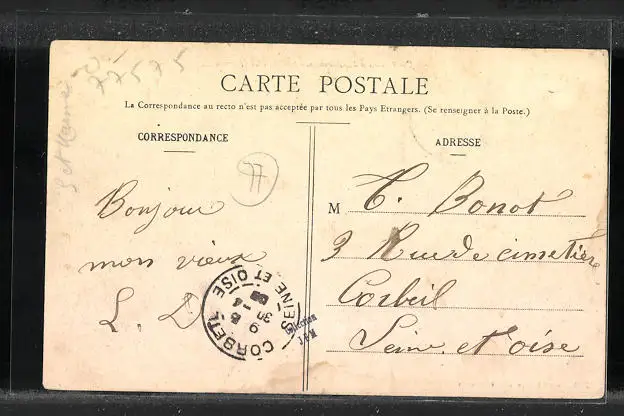 77575
S et Marne
CARTE POSTALE
La Correspondance au recto n'est pas acceptée par tous les Pays Etrangers. (Se renseigner à la Poste.)
CORRESPONDANCE
ADRESSE
77
Bonjour
mon vieux
L. D
M C. Bonot
9 Rue de cimetière
Corbeil
Seine et oise
CORBEIL
SEINE ET OISE